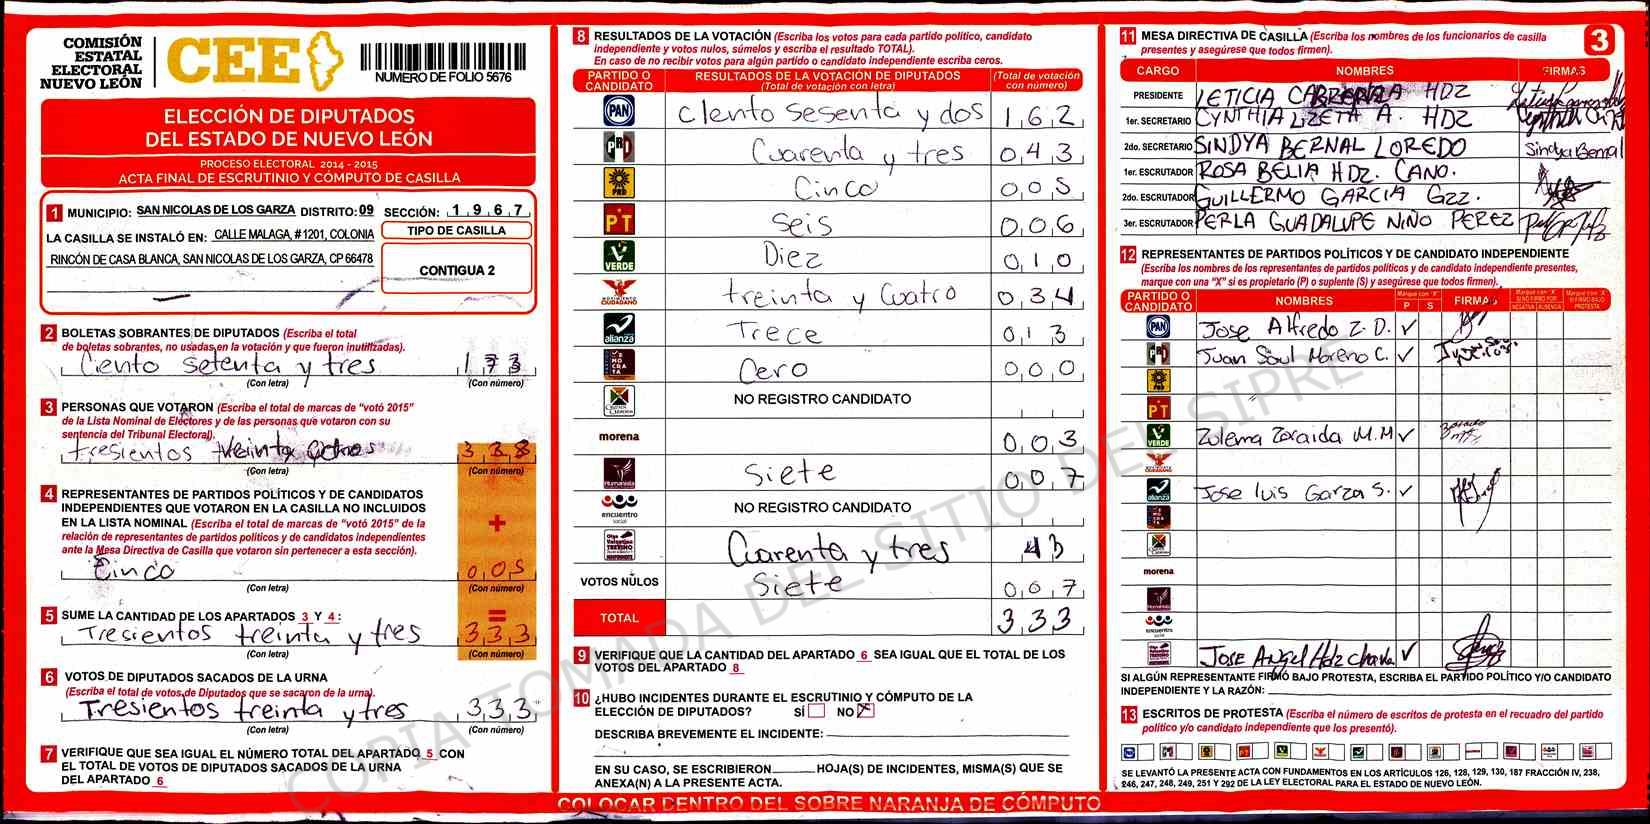 COMISIÓN
ESTATAL
ELECTORAL
NUEVO LEÓN
CEE
NUMERO DE FOLIO 5676
ELECCIÓN DE DIPUTADOS
DEL ESTADO DE NUEVO LEÓN
PROCESO ELECTORAL 2014 - 2015
ACTA FINAL DE ESCRUTINIO Y CÓMPUTO DE CASILLA
1 MUNICIPIO: SAN NICOLAS DE LOS GARZA DISTRITO: 09 SECCIÓN: 1 9 6 7
LA CASILLA SE INSTALÓ EN: CALLE MALAGA, #1201, COLONIA
RINCÓN DE CASA BLANCA, SAN NICOLAS DE LOS GARZA, CP 66478
TIPO DE CASILLA
CONTIGUA 2
2 BOLETAS SOBRANTES DE DIPUTADOS (Escriba el total
de boletas sobrantes, no usadas en la votación y que fueron inutilizadas).
Ciento setenta y tres 1 7 3
(Con letra) (Con número)
3 PERSONAS QUE VOTARON (Escriba el total de marcas de "votó 2015"
de la Lista Nominal de Electores y de las personas que votaron con su
sentencia del Tribunal Electoral).
tresientos 3 2 8
(Con letra) (Con número)
4 REPRESENTANTES DE PARTIDOS POLÍTICOS Y DE CANDIDATOS
INDEPENDIENTES QUE VOTARON EN LA CASILLA NO INCLUIDOS
EN LA LISTA NOMINAL (Escriba el total de marcas de "votó 2015" de la
relación de representantes de partidos políticos y de candidatos independientes
ante la Mesa Directiva de Casilla que votaron sin pertenecer a esta sección).
+
Cinco 0 0 5
(Con letra) (Con número)
=
5 SUME LA CANTIDAD DE LOS APARTADOS 3 Y 4:
Tresientos treinta y tres 3 3 3
(Con letra) (Con número)
6 VOTOS DE DIPUTADOS SACADOS DE LA URNA
(Escriba el total de votos de Diputados que se sacaron de la urna).
Tresientos treinta y tres 3 3 3
(Con letra) (Con número)
7 VERIFIQUE QUE SEA IGUAL EL NÚMERO TOTAL DEL APARTADO 5 CON
EL TOTAL DE VOTOS DE DIPUTADOS SACADOS DE LA URNA
DEL APARTADO 6
8 RESULTADOS DE LA VOTACIÓN (Escriba los votos para cada partido político, candidato
independiente y votos nulos, súmelos y escriba el resultado TOTAL).
En caso de no recibir votos para algún partido o candidato independiente escriba ceros.
PARTIDO O CANDIDATO RESULTADOS DE LA VOTACIÓN DE DIPUTADOS (Total de votación con letra) (Total de votación con número)
PAN CIento sesenta y dos 1 6 2
PRD Cuarenta y tres 0 4 3
PRD Cinco 0 0 5
PT Seis 0 0 6
VERDE Diez 0 1 0
MOVIMIENTO CIUDADANO treinta y Cuatro 0 3 4
alianza Trece 0 1 3
DEMOCRATA Cero 0 0 0
NO REGISTRO CANDIDATO
morena 0 0 3
Humanista Siete 0 0 7
encuentro social NO REGISTRO CANDIDATO
Cuarenta y tres 4 3
VOTOS NULOS Siete 0 0 7
TOTAL 3 3 3
9 VERIFIQUE QUE LA CANTIDAD DEL APARTADO 6 SEA IGUAL QUE EL TOTAL DE LOS
VOTOS DEL APARTADO 8
10 ¿HUBO INCIDENTES DURANTE EL ESCRUTINIO Y CÓMPUTO DE LA
ELECCIÓN DE DIPUTADOS? SÍ NO X
DESCRIBA BREVEMENTE EL INCIDENTE:
EN SU CASO, SE ESCRIBIERON HOJA(S) DE INCIDENTES, MISMA(S) QUE SE
ANEXA(N) A LA PRESENTE ACTA.
11 MESA DIRECTIVA DE CASILLA (Escriba los nombres de los funcionarios de casilla
presentes y asegúrese que todos firmen).
3
CARGO NOMBRES FIRMAS
PRESIDENTE LETICIA CARRANZA HDZ
1er. SECRETARIO CYNTHIA LIZETA A. HDZ
2do. SECRETARIO SINDYA BERNAL LOREDO Sindya Bernal
1er. ESCRUTADOR ROSA BELIA HDZ. CANO.
2do. ESCRUTADOR GUILLERMO GARCIA GZZ.
3er. ESCRUTADOR PERLA GUADALUPE NIÑO PEREZ
12 REPRESENTANTES DE PARTIDOS POLÍTICOS Y DE CANDIDATO INDEPENDIENTE
(Escriba los nombres de los representantes de partidos políticos y de candidato independiente presentes,
marque con una "X" si es propietario (P) o suplente (S) y asegúrese que todos firmen).
PARTIDO O CANDIDATO NOMBRES Marque con "X" P S FIRMAS
PAN Jose Alfredo Z. D. ✓
Juan Saul Moreno C. ✓
PRD
PT
VERDE Zulema Zoraida M.M ✓
alianza Jose luis Garza S. ✓
morena
Humanista
encuentro social
Jose Angel Hdz chava ✓
SI ALGÚN REPRESENTANTE FIRMÓ BAJO PROTESTA, ESCRIBA EL PARTIDO POLÍTICO Y/O CANDIDATO
INDEPENDIENTE Y LA RAZÓN:
13 ESCRITOS DE PROTESTA (Escriba el número de escritos de protesta en el recuadro del partido
político y/o candidato independiente que los presentó).
SE LEVANTÓ LA PRESENTE ACTA CON FUNDAMENTOS EN LOS ARTÍCULOS 126, 128, 129, 130, 187 FRACCIÓN IV, 238,
246, 247, 248, 249, 251 Y 292 DE LA LEY ELECTORAL PARA EL ESTADO DE NUEVO LEÓN.
COLOCAR DENTRO DEL SOBRE NARANJA DE CÓMPUTO
COPIA TOMADA DEL SITIO DEL SIPRE